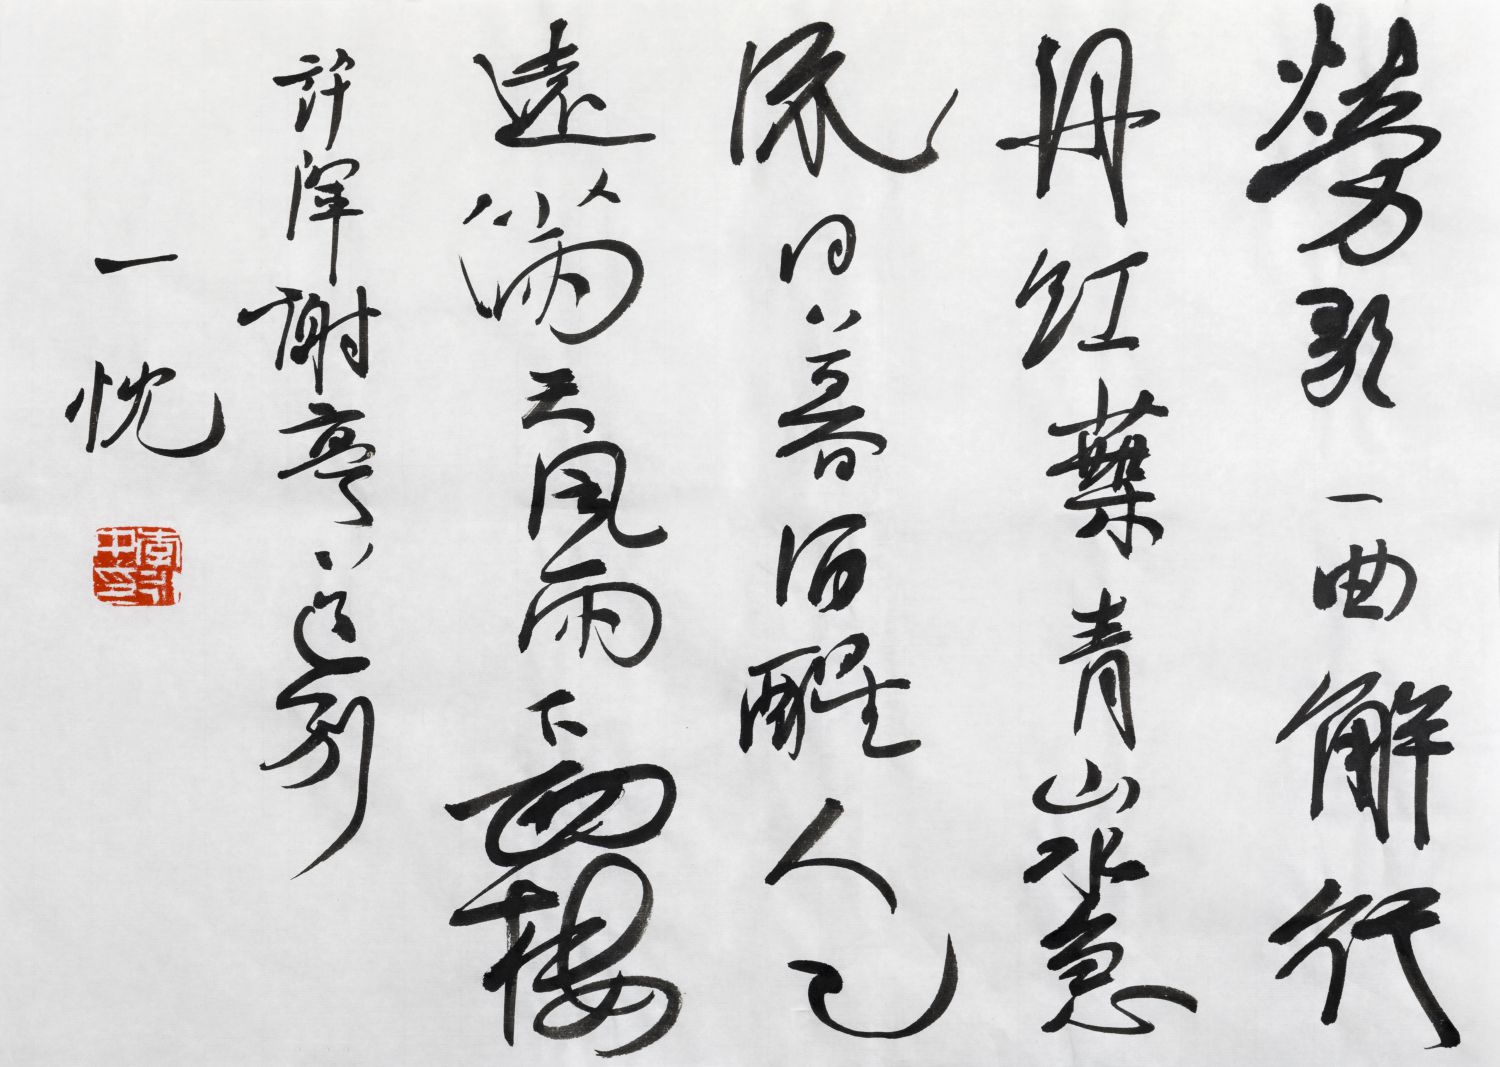 勞歌一曲解行
舟紅葉青山水急
流日暮酒醒人已
遠滿天風雨下西樓
許渾謝亭送別
一忱